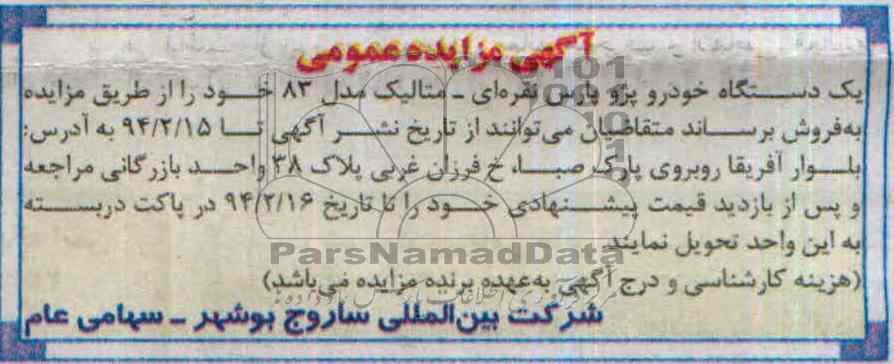 آگهی مزایده عمومی
یک دستگاه خودرو پژو پارس نقره‌ای - متالیک مدل ۸۳ خود را از طریق مزایده
به‌فروش برساند متقاضیان می‌توانند از تاریخ نشر آگهی تا ۹۴/۲/۱۵ به آدرس:
بلوار آفریقا روبروی پارک صبا، خ فرزان غربی پلاک ۳۸ واحد بازرگانی مراجعه
و پس از بازدید قیمت پیشنهادی خود را تا تاریخ ۹۴/۲/۱۶ در پاکت دربسته
به این واحد تحویل نمایند.
ParsNamadData
(هزینه کارشناسی و درج آگهی به‌عهده برنده مزایده می‌باشد)
شرکت بین‌المللی ساروج بوشهر - سهامی عام